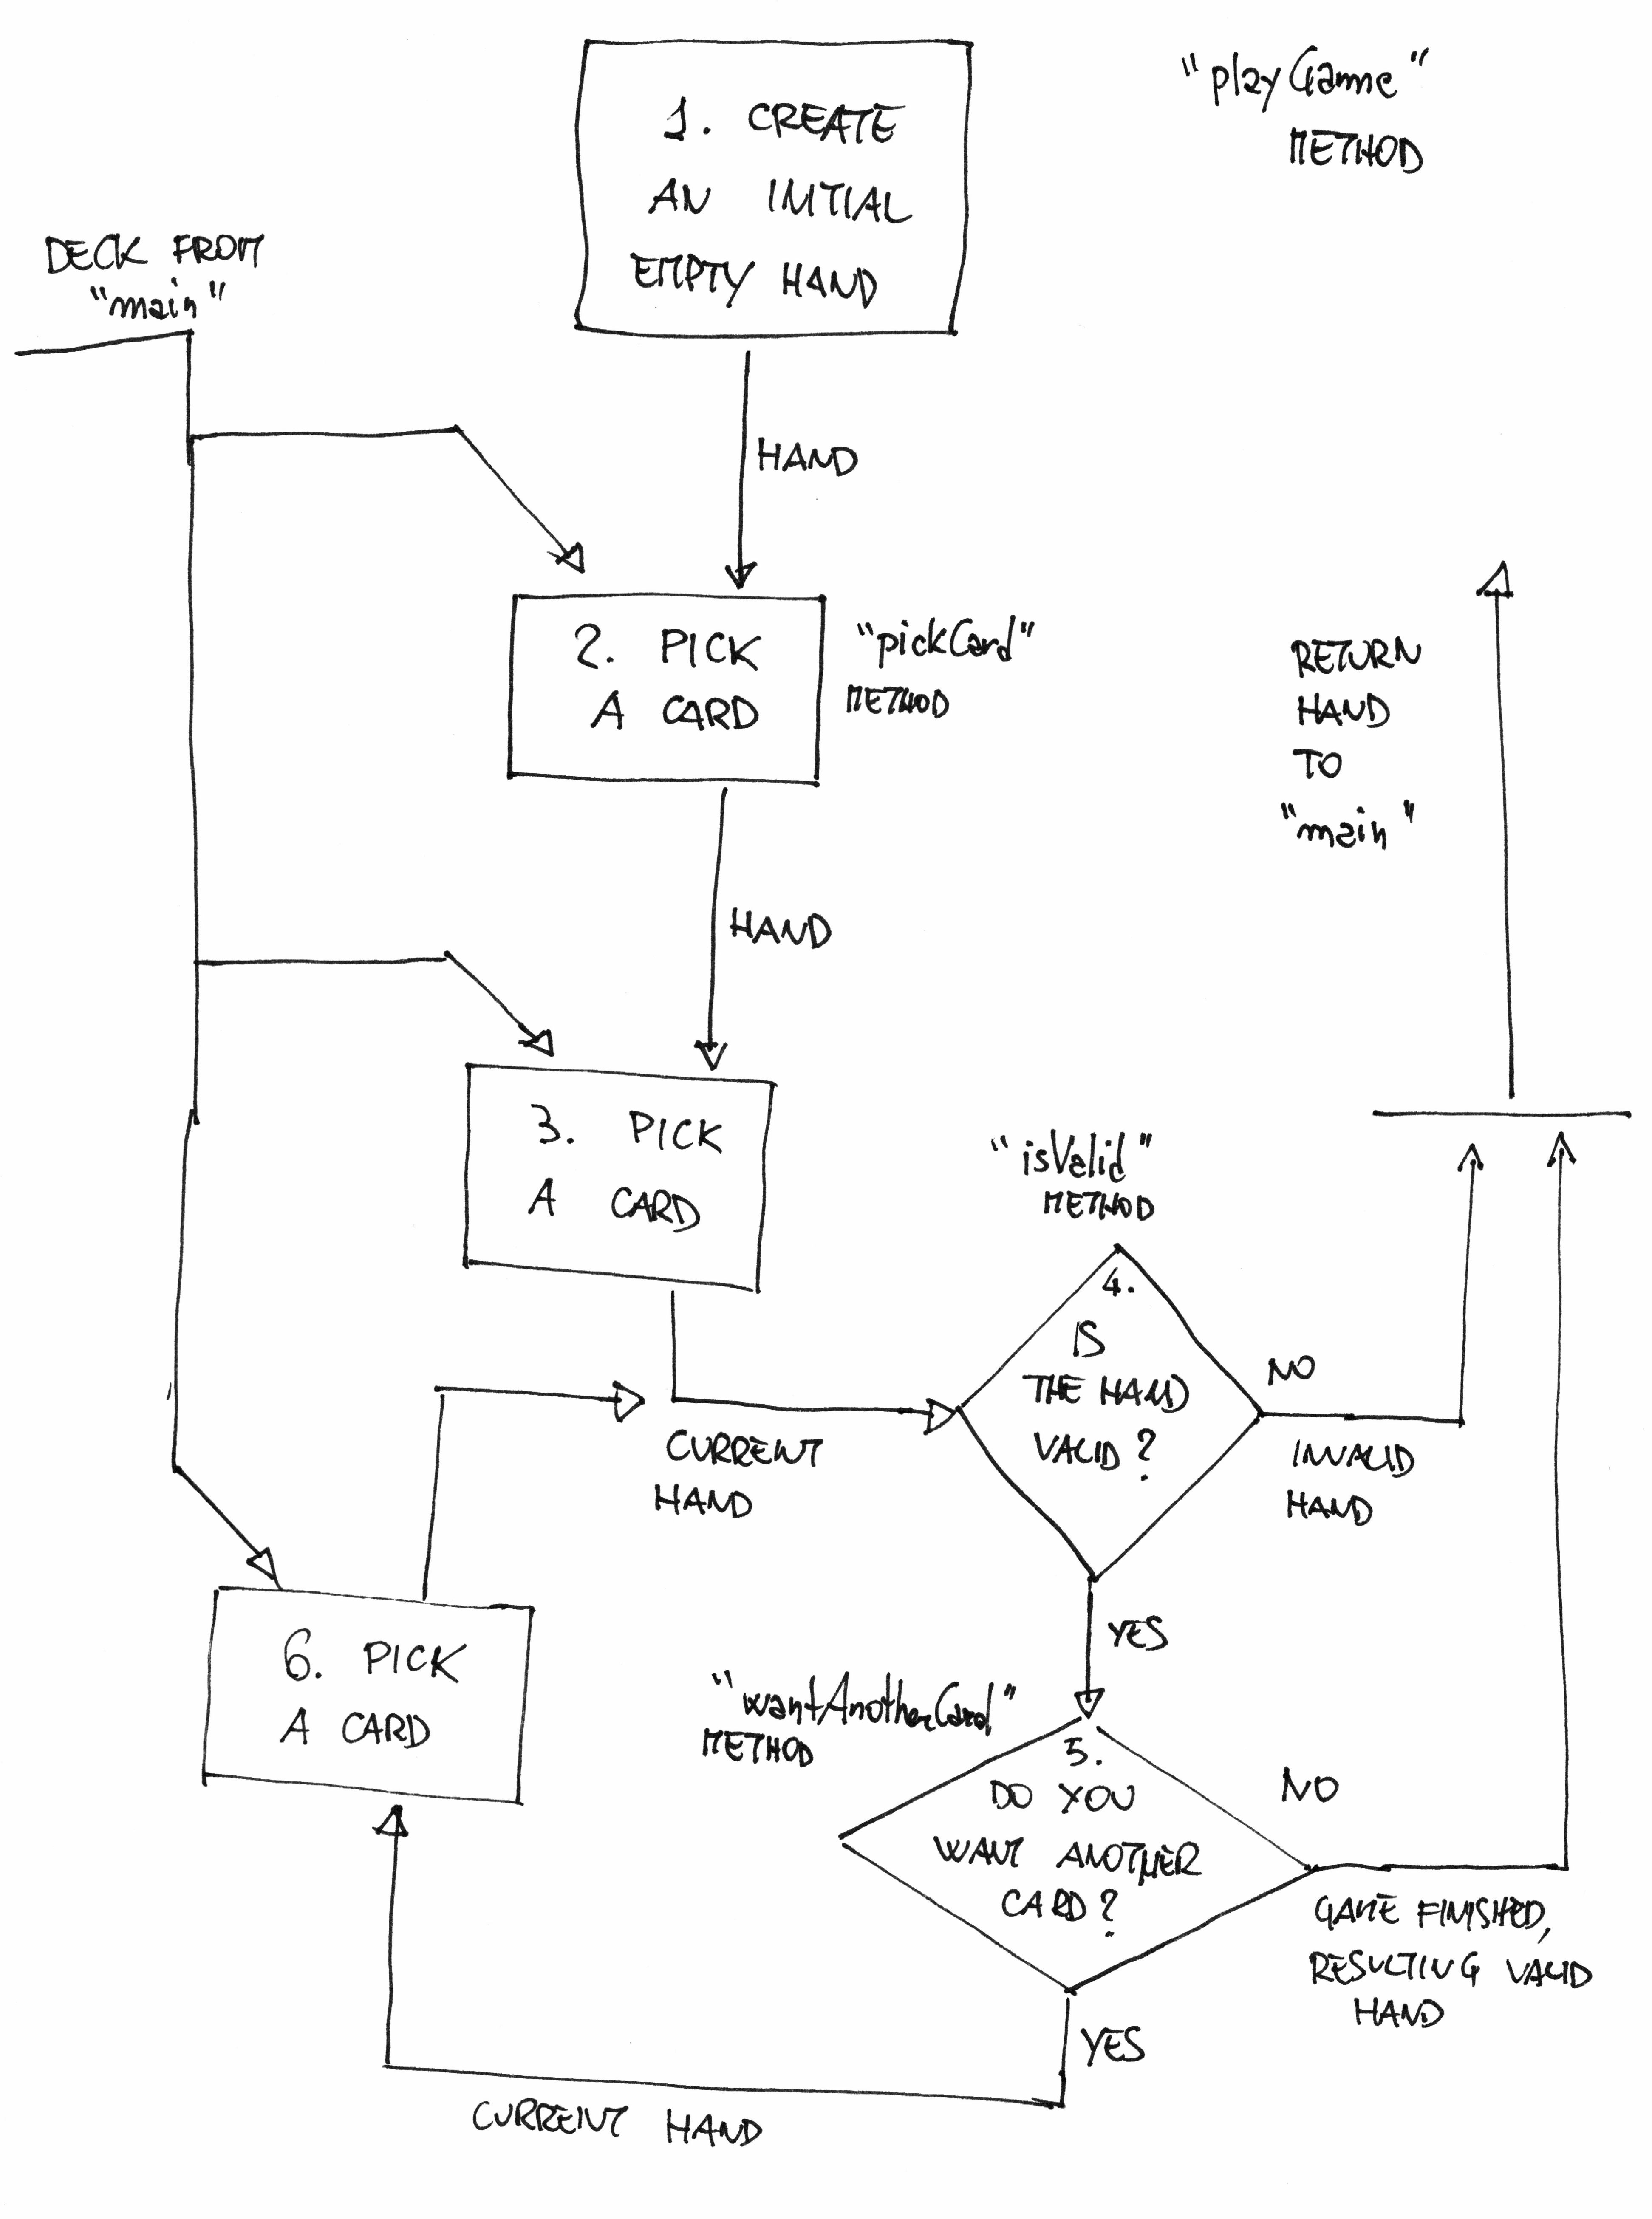 "playGame"
METHOD
1. CREATE
AN INITIAL
EMPTY HAND
DECK FROM
"main"
HAND
2. PICK
A CARD
"pickCard"
METHOD
RETURN
HAND
TO
"main"
HAND
3. PICK
A CARD
"isValid"
METHOD
4.
IS
THE HAND
VALID?
NO
INVALID
HAND
CURRENT
HAND
YES
6. PICK
A CARD
"wantAnotherCard"
METHOD
5.
DO YOU
WANT ANOTHER
CARD?
NO
GAME FINISHED,
RESULTING VALID
HAND
YES
CURRENT HAND